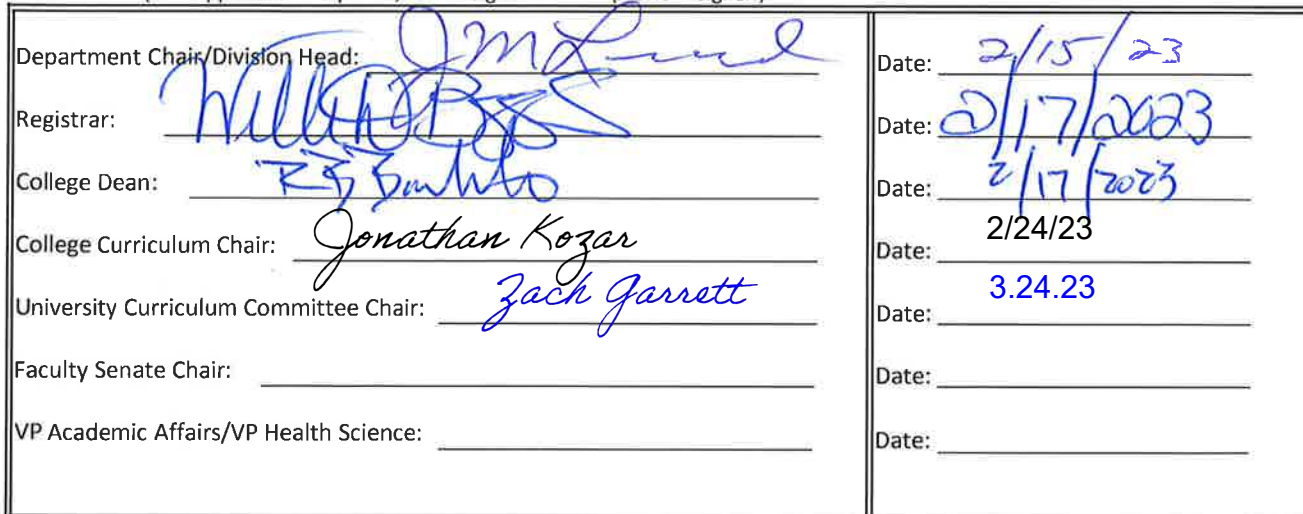 Department Chair/Division Head: Date: 2/15/23
Registrar: Date: 2/17/2023
College Dean: Date: 2/17/2023
College Curriculum Chair: Jonathan Kozar Date: 2/24/23
University Curriculum Committee Chair: Zach Garrett Date: 3.24.23
Faculty Senate Chair: Date:
VP Academic Affairs/VP Health Science: Date: